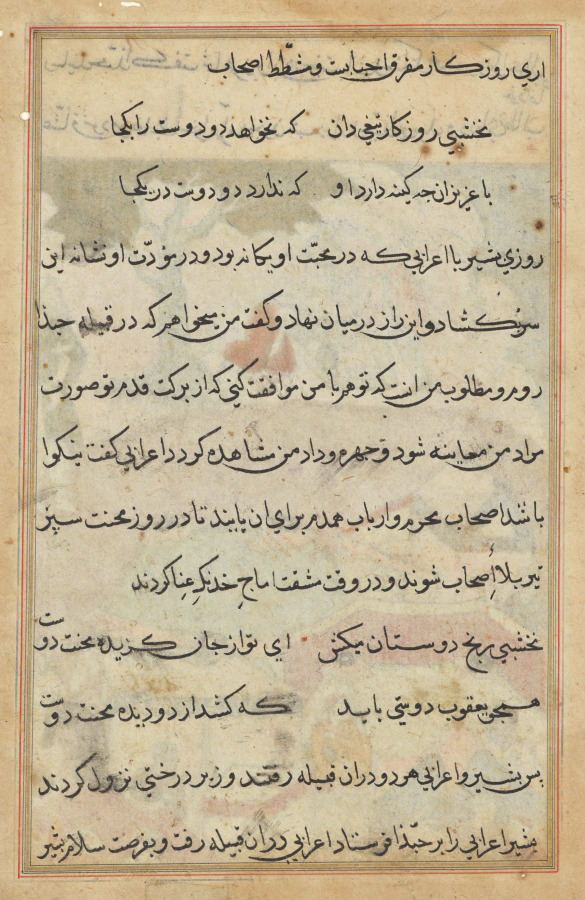 اری روزکار مفرق احباست و مشطط اصحاب
نخشبی روزکار تیغی دان که نخواهد دو دوست را یکجا
با عزیزان چه کینه دارد او که ندارد دو دوست در یکجا
روزی بشیر با اعرابی که در محبت او یکانه بود و در مودّت او نشانه این
سر بکشاد و این راز در میان نهاد و کفت من میخواهم که در قبیله حبذا
روم و مطلوب من انست که تو هم با من موافقت کنی که از برکت قدم تو صورت
مراد من معاینه شود و چهره وداد من مشاهده کردد اعرابی کفت نیکوا
باشد اصحاب محرم و ارباب همدم برای ان پایند تا در روز محنت سپر
تیر بلاأ اصحاب شوند و در وقت مشقت اماج خدنک عنا کردند
نخشبی رنج دوستان میکش ای تو از جان کزیده محنت دوست
همچو یعقوب دوستی باید که کشد از دو دیده محنت دوست
پس بشیر و اعرابی هر دو دران قبیله رفتند و زیر درختی نزول کردند
بشیر اعرابی را بر حبّذا فرستاد اعرابی دران قبیله رفت و بفرصت سلام بشیر